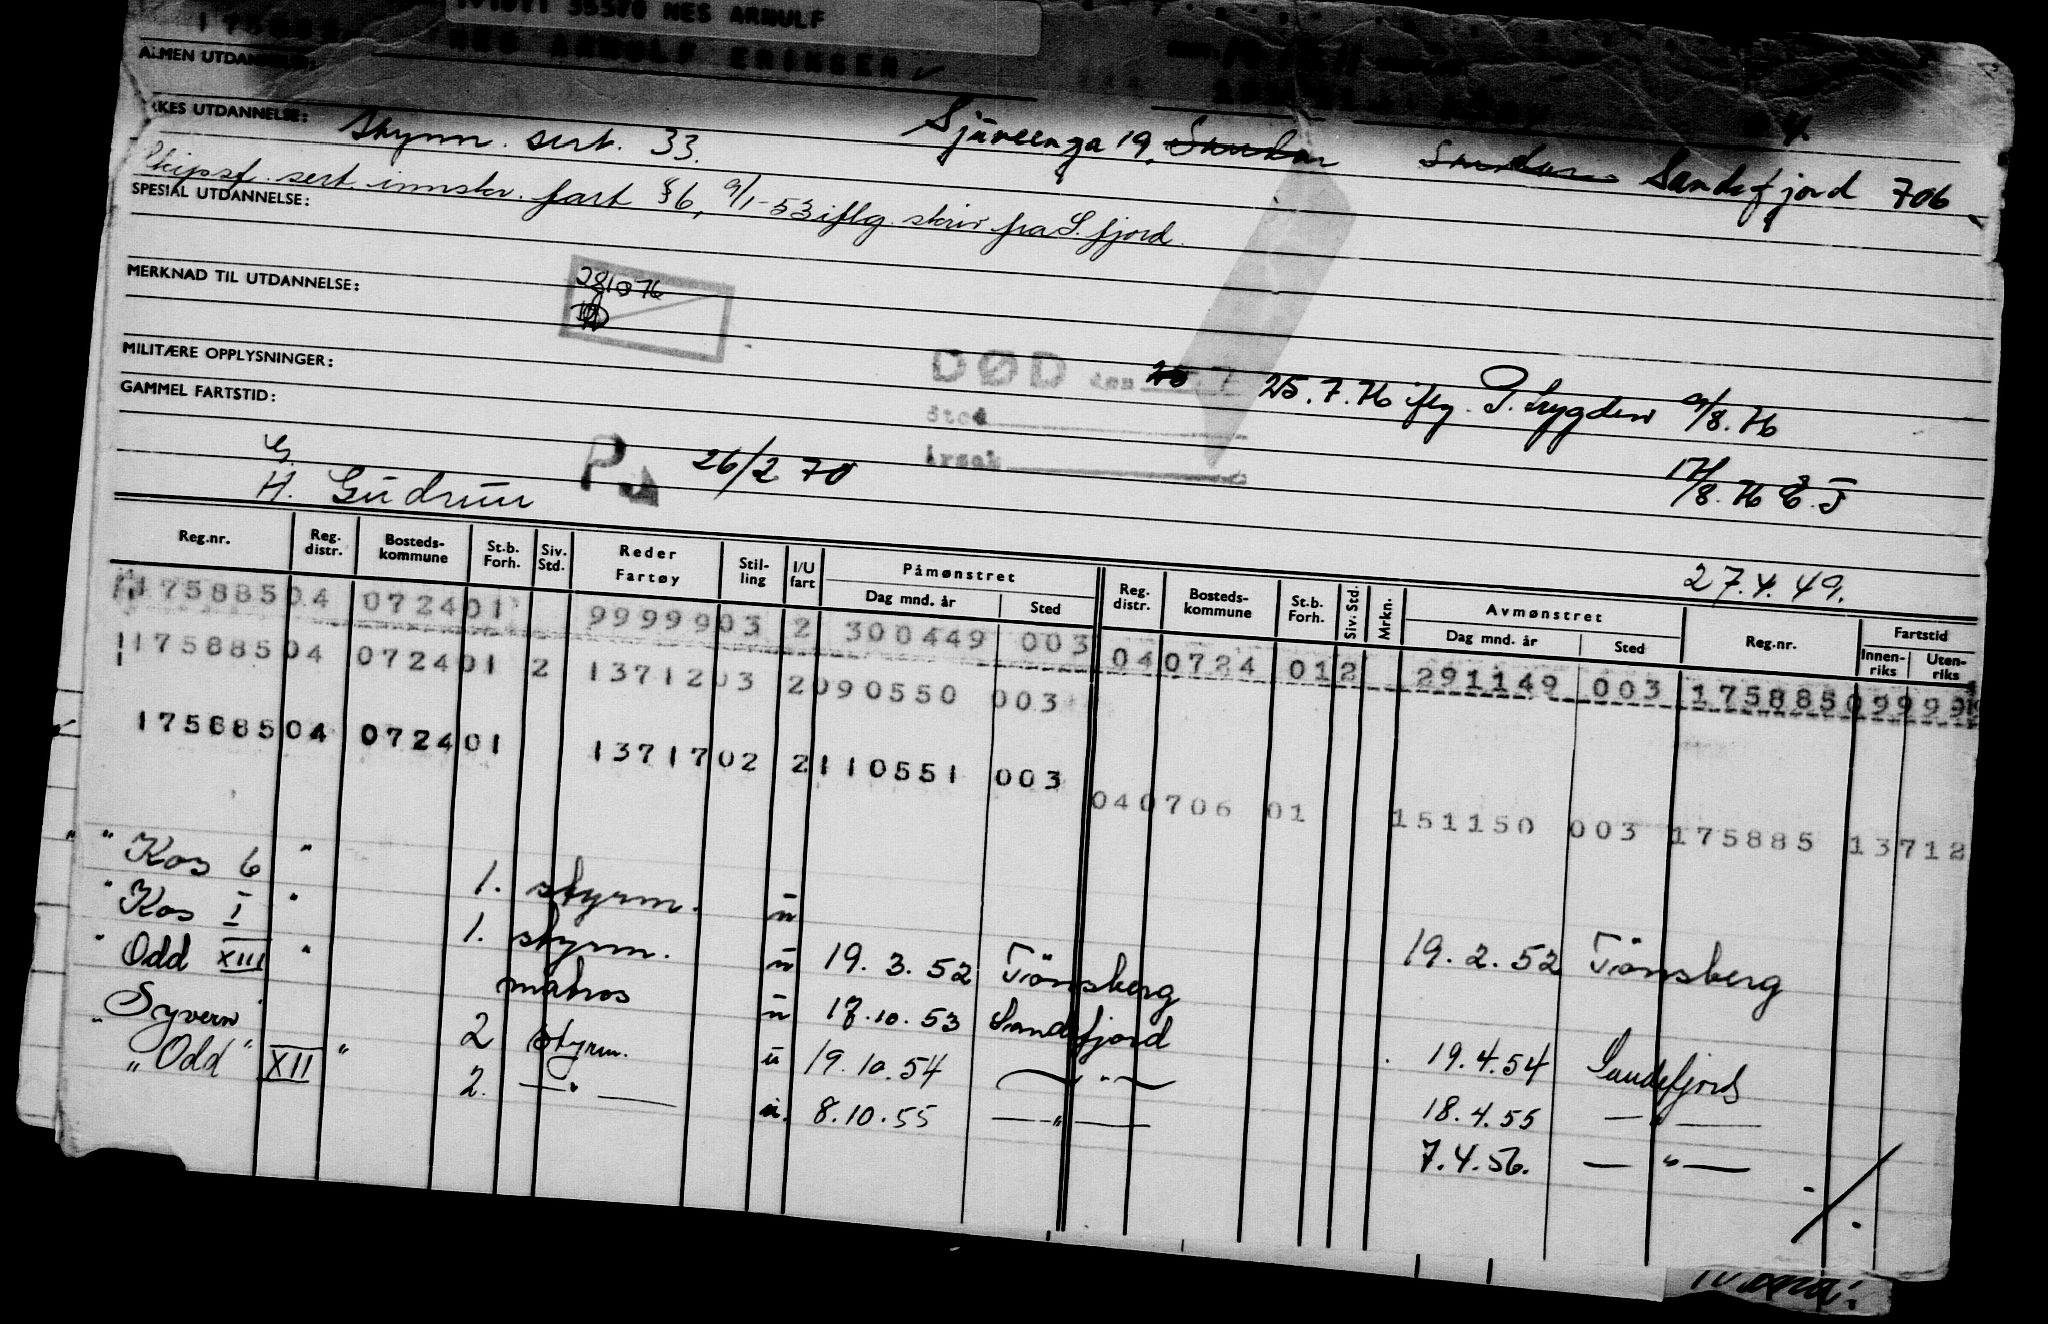 NES ARNULF
NES ARNULF ERIKSEN
ALMEN UTDANNELSE:
YRKES UTDANNELSE: Styrm. sert. 33. Sjuveenga 19, Sandefjord 706
Skipsf. sert. innskr. fart §6, 9/1-53 iflg. skriv fra S. fjord.
SPESIAL UTDANNELSE:
MERKNAD TIL UTDANNELSE:
MILITÆRE OPPLYSNINGER:
DØD den 25.7.76 iflg. P. Trygden 9/8.76
GAMMEL FARTSTID:
Sted
P 26/2 70 Årsak 17/8.76
G.
H. Gudrun
27.4.49.
Reg.nr. Reg. distr. Bosteds-kommune St.b. Forh. Siv. Std. Reder Fartøy Stil-ling I/U fart Påmønstret Dag mnd. år Sted Reg. distr. Bosteds-kommune St.b. Forh. Siv. Std. Mrkn. Avmønstret Dag mnd. år Sted Reg.nr. Fartstid Innen-riks Uten-riks
175885 04 0724 01 99999 03 2 300449 003 04 0724 01 2 291149 003 175885 09999
175885 04 0724 01 2 13712 03 2 090550 003 04 0706 01 151150 003 175885 13712
175885 04 0724 01 13717 02 2 110551 003
" Kos 6 " 1. styrm. u 19.2.52 Tönsberg
" Kos I " 1. styrm. u 19.3.52 Tönsberg
" Odd XIII " matros u 17.10.53 Sandefjord 19.4.54 Sandefjord
Syvern 2 styrm. u 19.10.54 — " — 18.4.55 — " —
" Odd " XII " 2. — " — u. 8.10.55 — " — 7.4.56. — " —